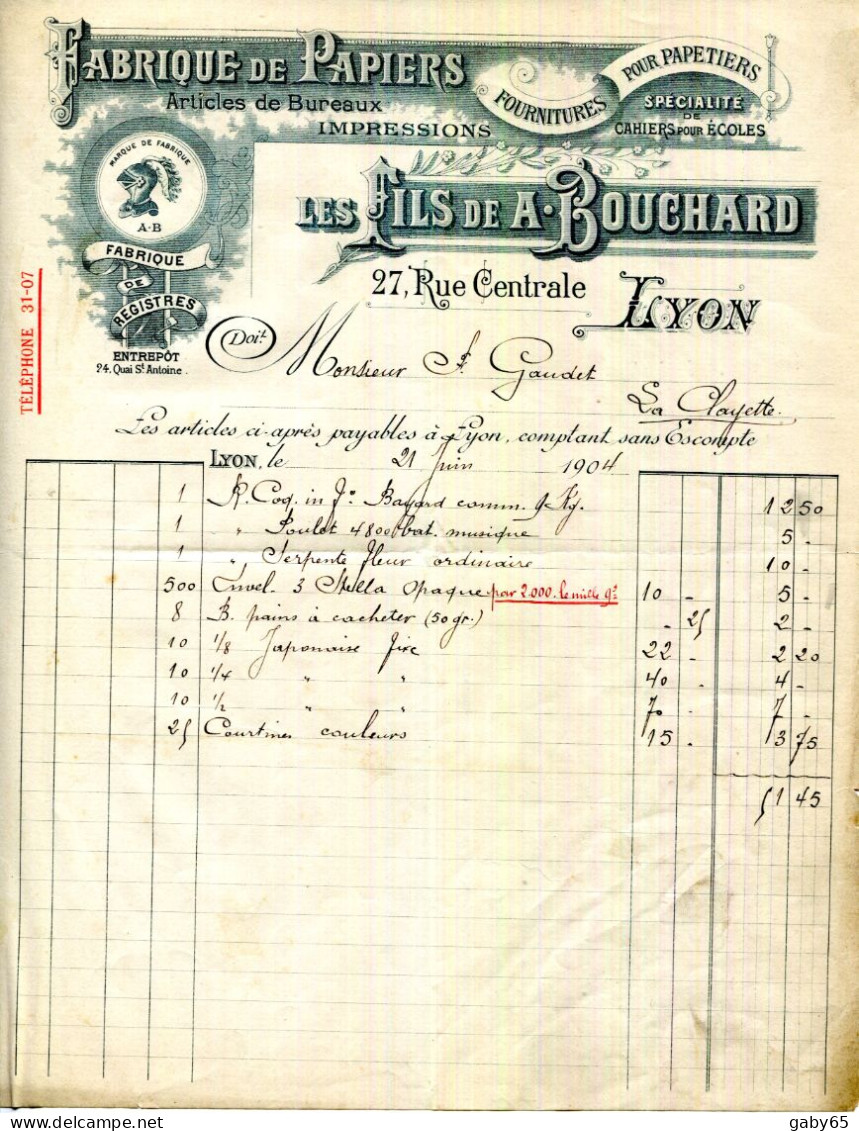 FABRIQUE DE PAPIERS
Articles de Bureaux
IMPRESSIONS
FOURNITURES POUR PAPETIERS
SPÉCIALITÉ
DE
CAHIERS POUR ÉCOLES
MARQUE DE FABRIQUE
A·B
FABRIQUE
DE
REGISTRES
ENTREPÔT
24, Quai St Antoine.
TÉLÉPHONE 31-07
LES FILS DE A·BOUCHARD
27, Rue Centrale LYON
Doit Monsieur Gaudet
La Clayette.
Les articles ci-après payables à Lyon, comptant sans Escompte
LYON, le 21 Juin 1904
1 R. Coq. in Jo Bayard comm. 9 Kg. 12 50
1 " Poulet 4800 bat. musique 5 -
1 " Serpente fleur ordinaire 10 -
500 Envel. 3 Stella Opaque par 2.000. le mille 9f 10 - 5 -
8 B. pains à cacheter (50 gr.) - 25 2 -
10 1/8 Japonaise fixe 22 - 2 20
10 1/4 " " 40 - 4 -
10 1/2 " " 70 - 7 -
25 Courtines couleurs 15 - 3 75
51 45
delcampe.net
gaby65